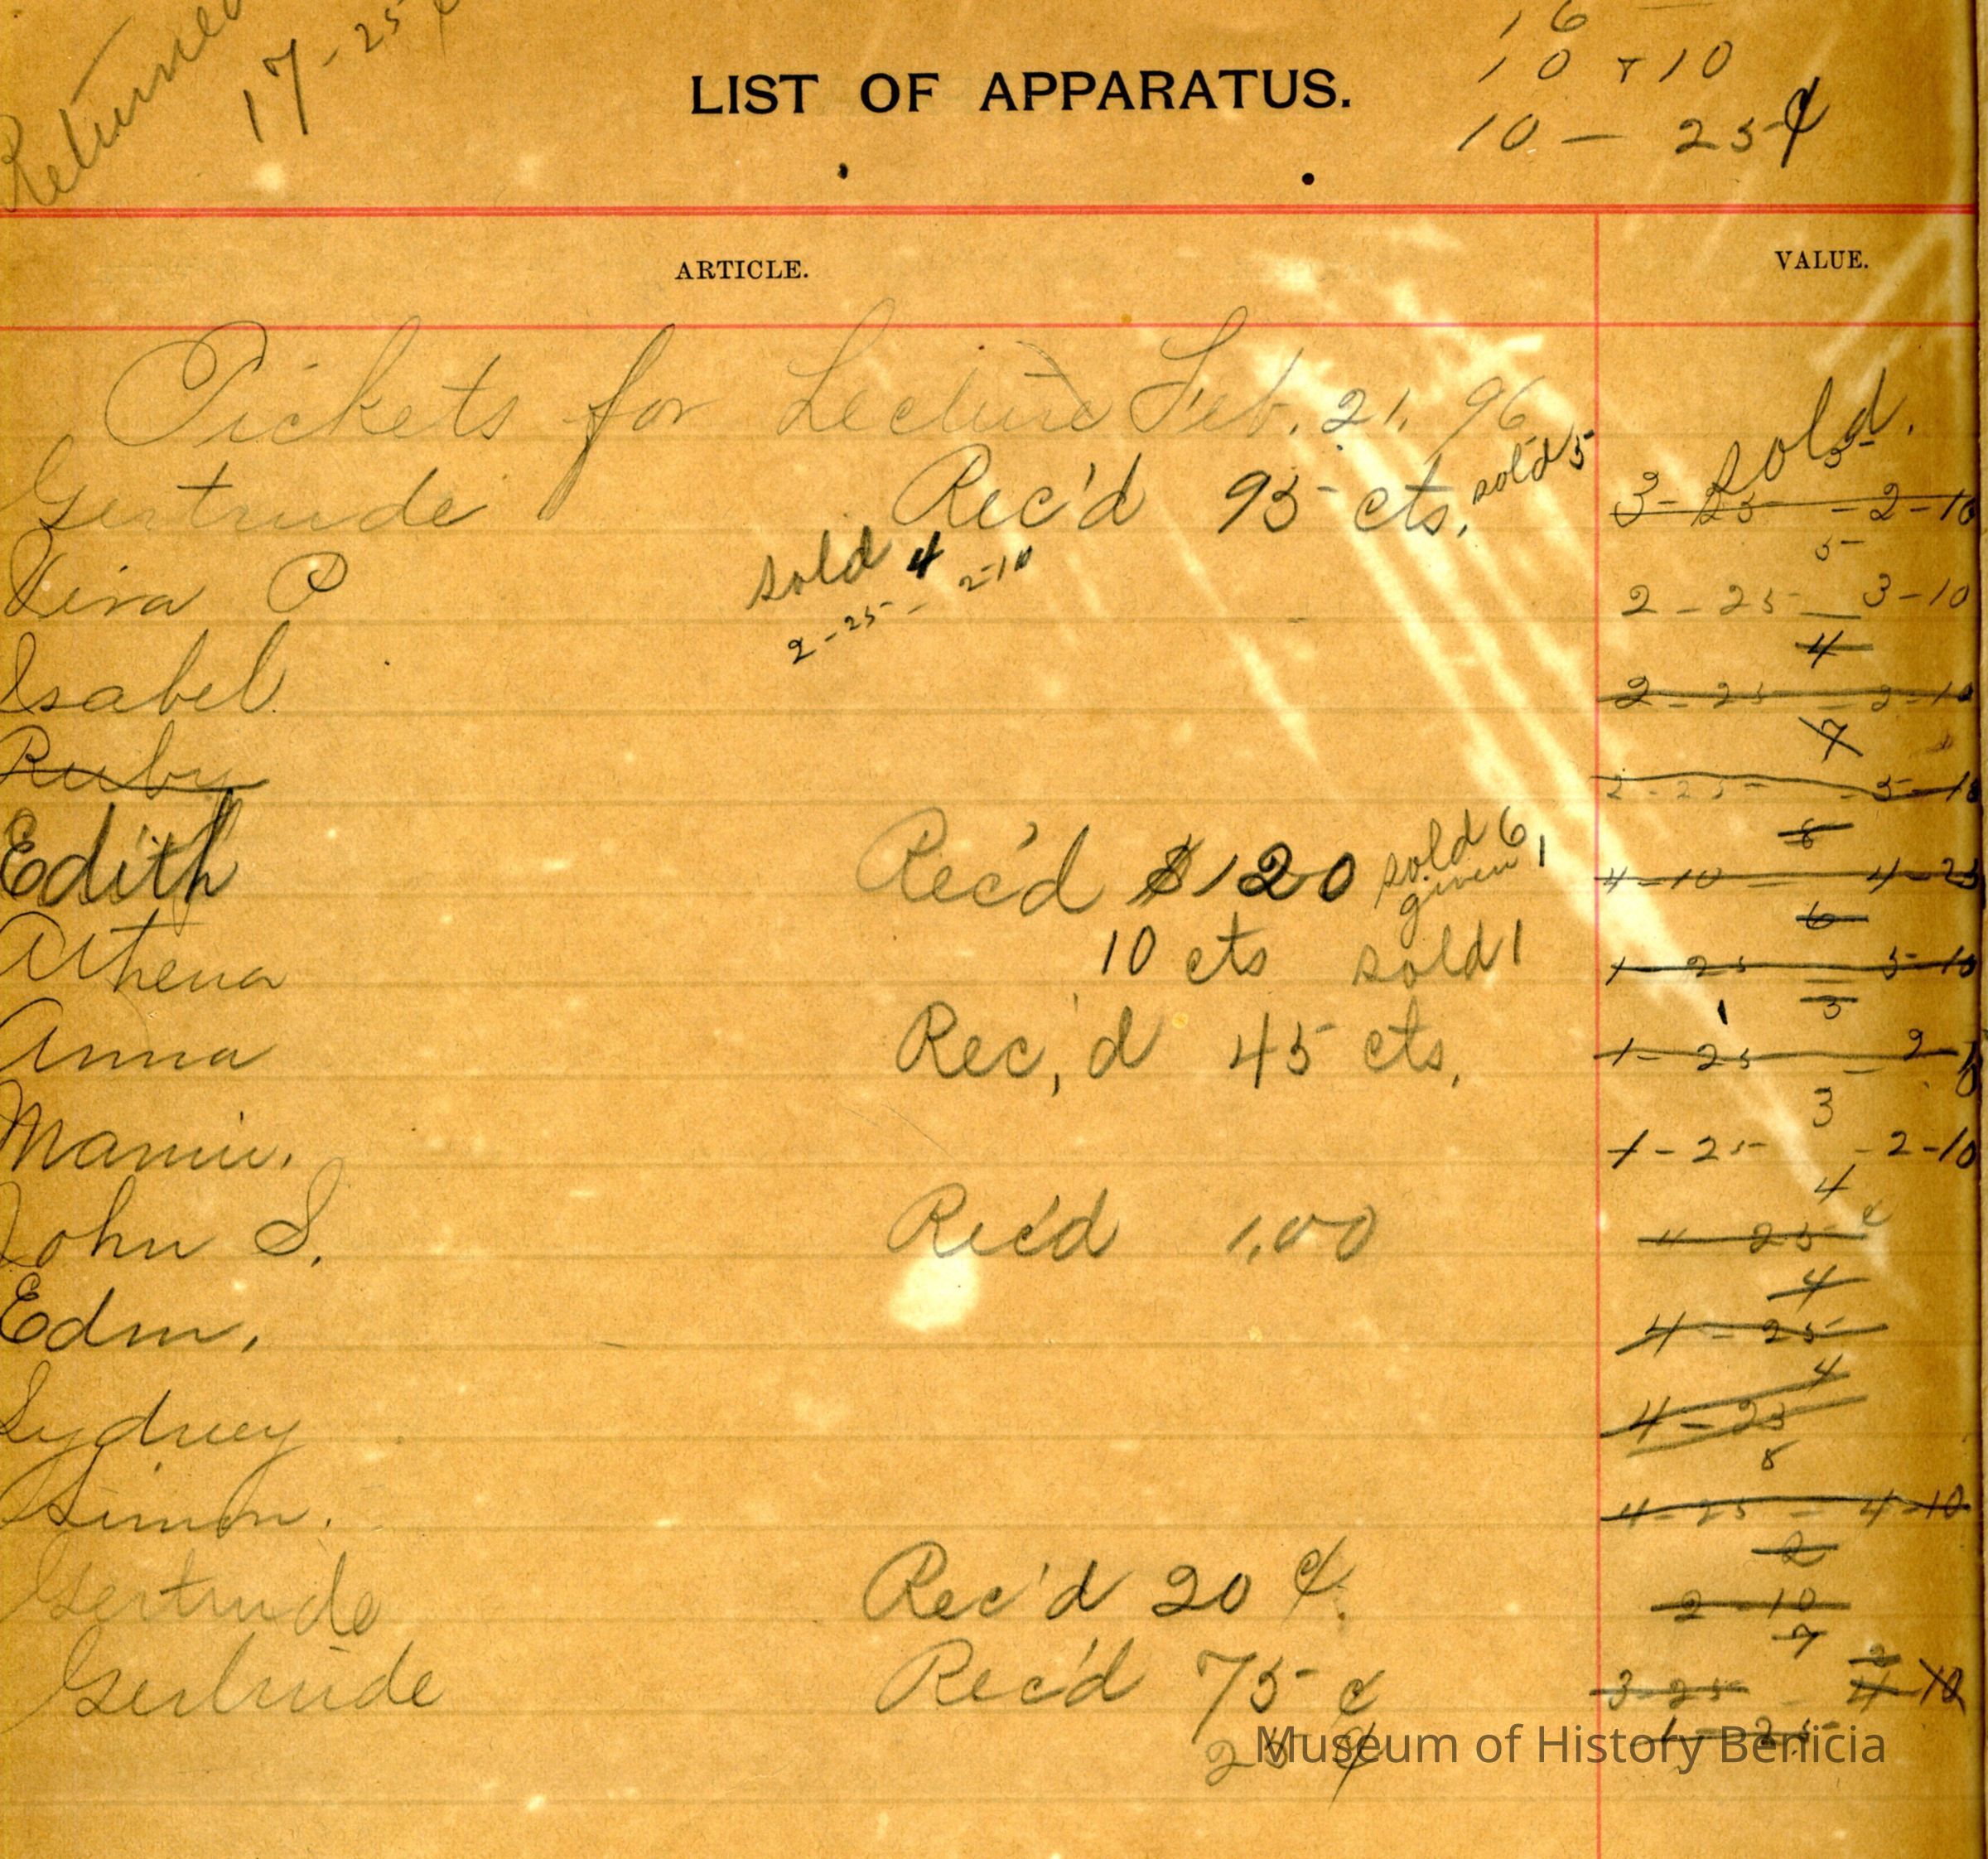 Returned
17 - 25 ¢
16
10 + 10
10 — 25 ¢
LIST OF APPARATUS.
ARTICLE. VALUE.
Tickets for Lecture Feb. 21. 96 sold.
5
Gertrude Rec'd 95 cts. sold 5 3 - 25 - 2 - 10
5
P sold 4 2 - 25 — 3 - 10
2 - 25 - 2-10
4
Isabel. 2 - 25 - 2 - 10
7
Ruby 2 - 25 - 5 - 10
8
Edith Rec'd $120 sold 6, given 1 4 - 10 — 4 - 25
6
Athena 10 cts sold 1 1 - 25 5 - 10
3
Anna Rec,'d 45 cts. 1 - 25 - 2 - 10
3
Mamie. 1 - 25 - 2 - 10
4
John S. Rec'd 1.00 25 ¢
4
Edm. 4 - 25
4
Sydney 4 - 25
8
Simon. 4 - 25 - 4 - 10
2
Gertrude Rec'd 20 ¢. 2 - 10
7
2
Gertrude Rec'd 75 ¢ 3 - 25 - 4 10
25 ¢ 1 - 25
Museum of History Benicia